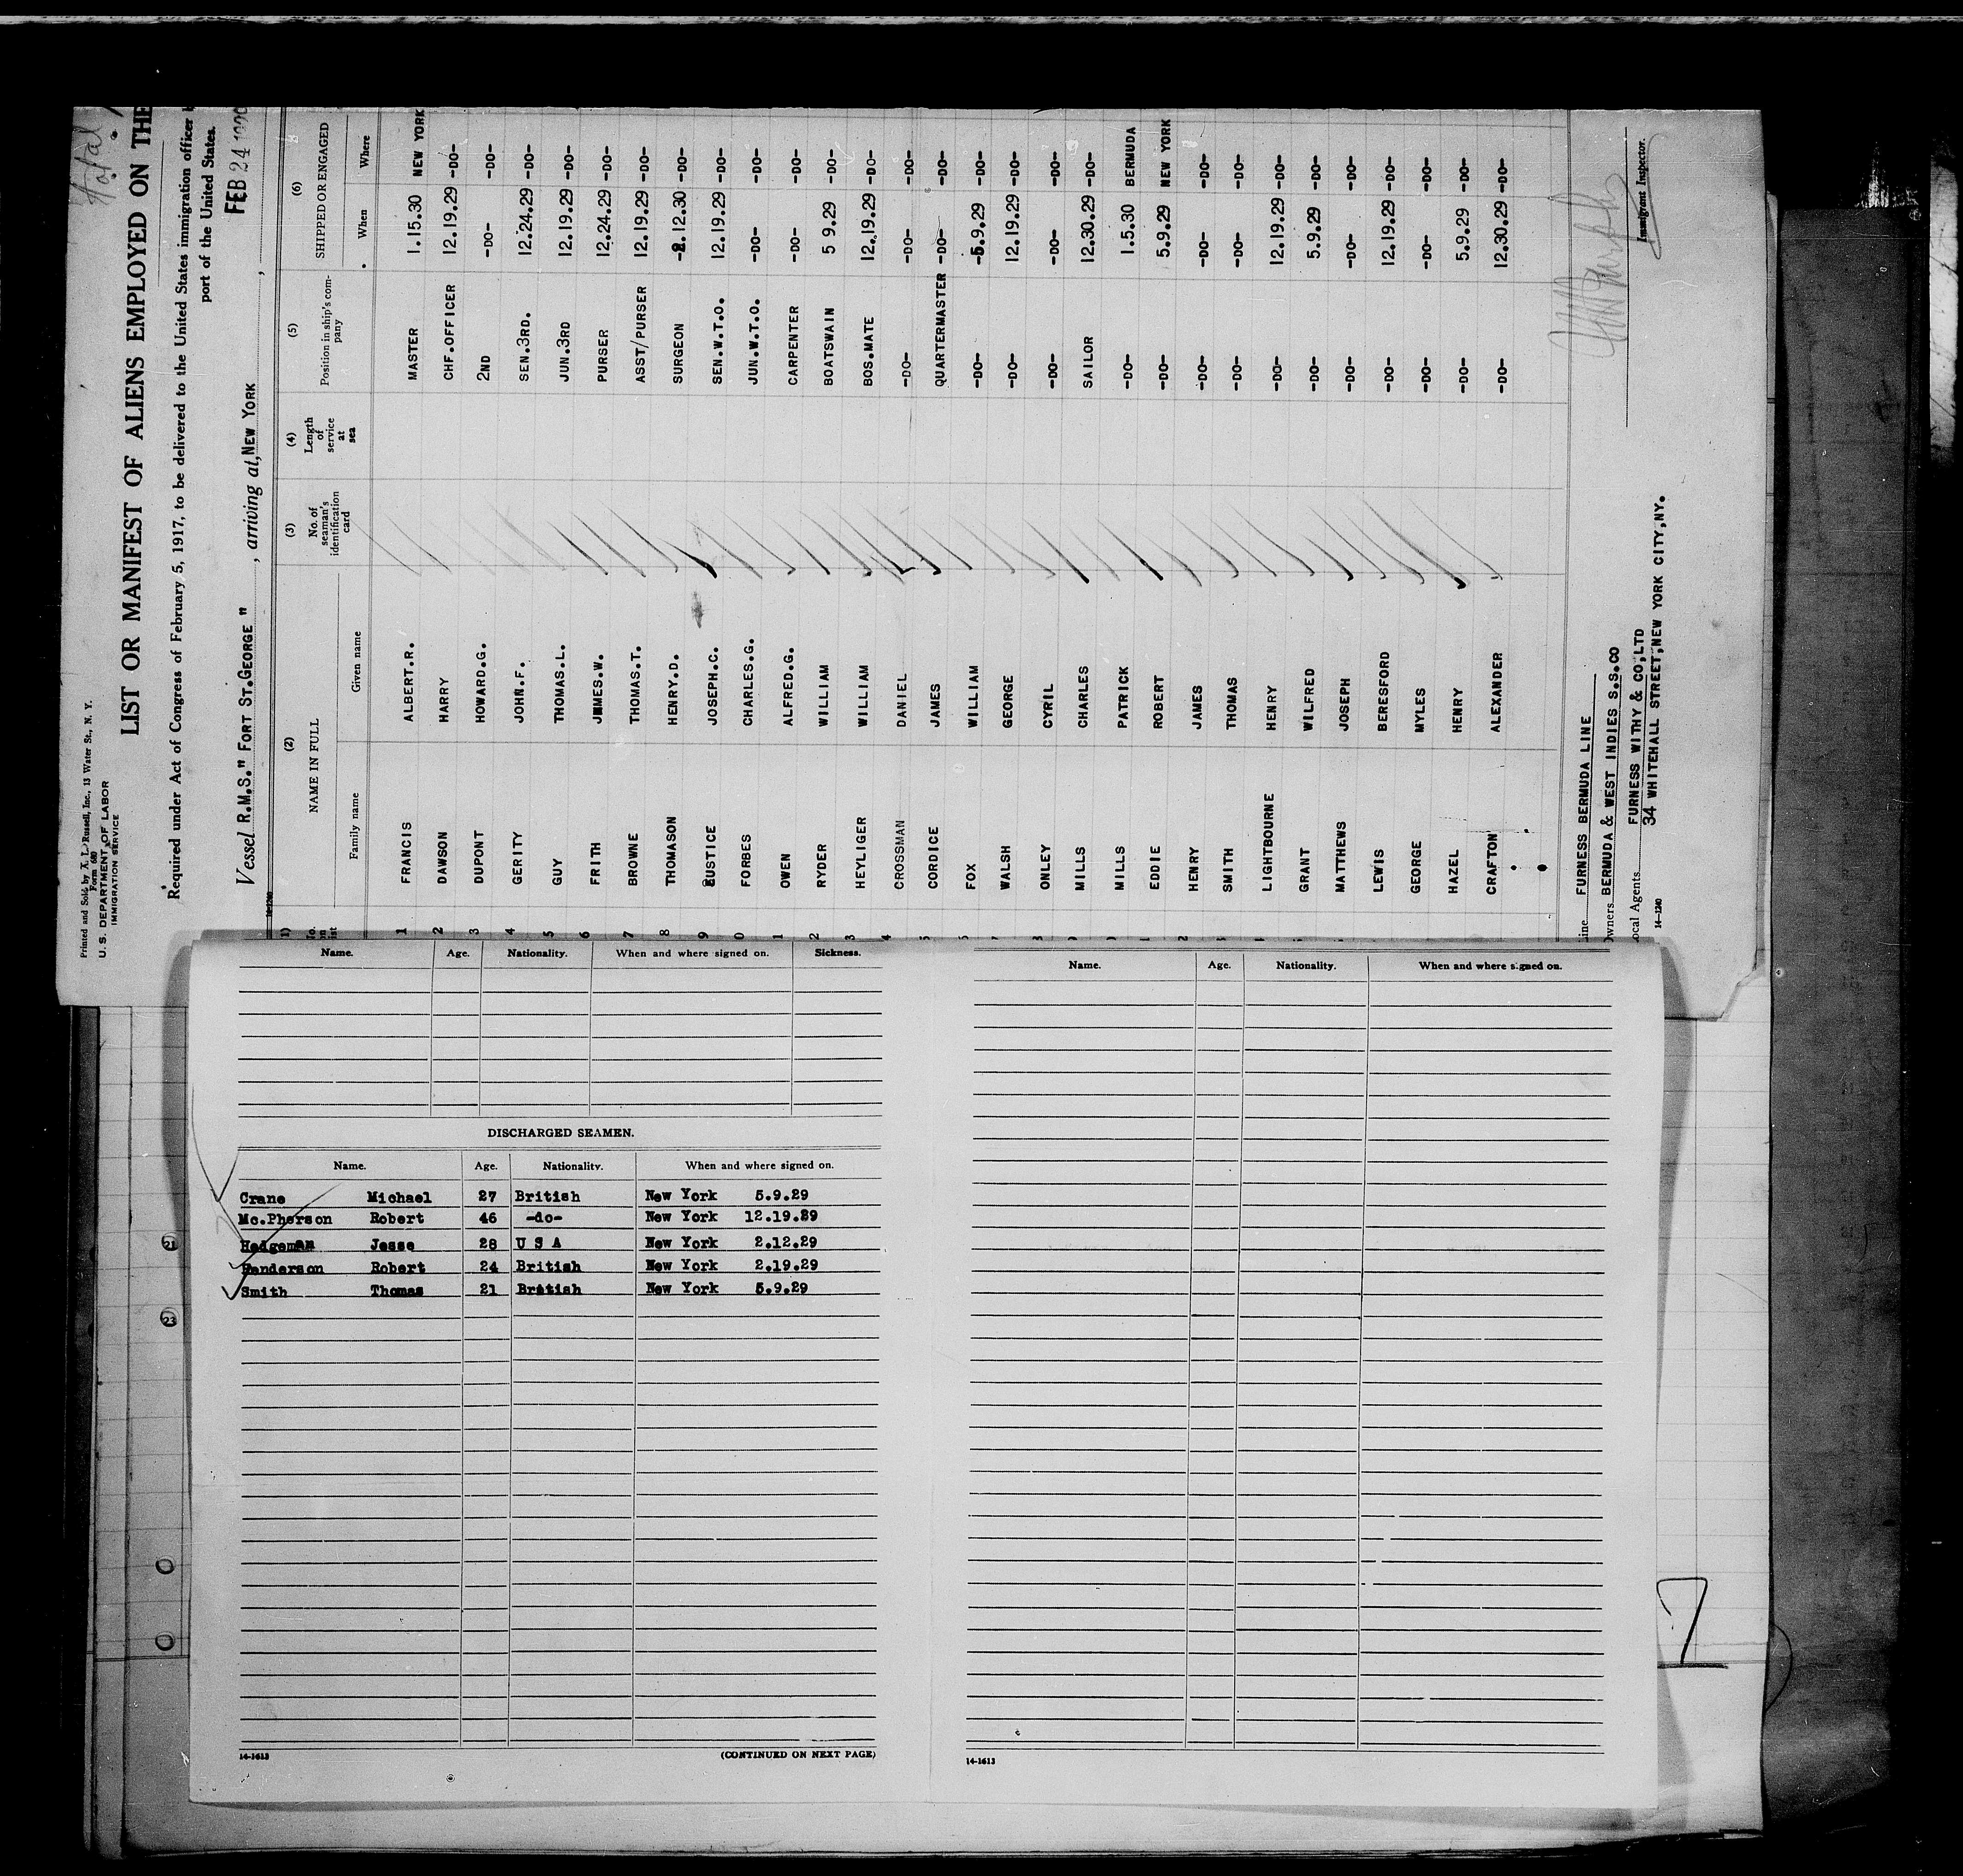 Total
Printed and Sold by X. L. Russell, Inc., 13 Water St., N. Y.
Form 680
U. S. DEPARTMENT OF LABOR
IMMIGRATION SERVICE
LIST OR MANIFEST OF ALIENS EMPLOYED ON THE
Required under Act of Congress of February 5, 1917, to be delivered to the United States immigration officer
port of the United States.
Vessel R.M.S." FORT ST.GEORGE ", arriving at, NEW YORK, FEB 24
14-1240
(1) (2) (3) (4) (5) (6)
NAME IN FULL No. of seaman's identification card Length of service at sea Position in ship's company SHIPPED OR ENGAGED
Family name Given name When Where
1 FRANCIS ALBERT.R. MASTER 1.15.30 NEW YORK
2 DAWSON HARRY CHF.OFFICER 12.19.29 -DO-
3 DUPONT HOWARD.G. 2ND -DO- -DO-
4 GERITY JOHN.F. SEN.3RD. 12.24.29 -DO-
5 GUY THOMAS.L. JUN.3RD 12.19.29 -DO-
6 FRITH JAMES.W. PURSER 12.24.29 -DO-
7 BROWNE THOMAS.T. ASST/PURSER 12.19.29 -DO-
8 THOMASON HENRY.D. SURGEON 2.12.30 -DO-
9 EUSTICE JOSEPH.C. SEN.W.T.O. 12.19.29 -DO-
0 FORBES CHARLES.G. JUN.W.T.O. -DO- -DO-
1 OWEN ALFRED.G. CARPENTER -DO- -DO-
2 RYDER WILLIAM BOATSWAIN 5 9.29 -DO-
3 HEYLIGER WILLIAM BOS.MATE 12.19.29 -DO-
4 CROSSMAN DANIEL -DO- -DO- -DO-
5 CORDICE JAMES QUARTERMASTER -DO- -DO-
FOX WILLIAM -DO- 5.9.29 -DO-
WALSH GEORGE -DO- 12.19.29 -DO-
ONLEY CYRIL -DO- -DO- -DO-
MILLS CHARLES SAILOR 12.30.29 -DO-
MILLS PATRICK -DO- 1.5.30 BERMUDA
EDDIE ROBERT -DO- 5.9.29 NEW YORK
HENRY JAMES -DO- -DO- -DO-
SMITH THOMAS -DO- -DO- -DO-
LIGHTBOURNE HENRY -DO- 12.19.29 -DO-
GRANT WILFRED -DO- 5.9.29 -DO-
MATTHEWS JOSEPH -DO- -DO- -DO-
LEWIS BERESFORD -DO- 12.19.29 -DO-
GEORGE MYLES -DO- -DO- -DO-
HAZEL HENRY -DO- 5.9.29 -DO-
CRAFTON ALEXANDER -DO- 12.30.29 -DO-
Line FURNESS BERMUDA LINE
Owners BERMUDA & WEST INDIES S.S.CO
Local Agents FURNESS WITHY & CO,LTD
34 WHITEHALL STREET,NEW YORK CITY,NY.
Immigrant Inspector.
14-1240
Name. Age. Nationality. When and where signed on. Sickness.
DISCHARGED SEAMEN.
Name. Age. Nationality. When and where signed on.
Crane Michael 27 British New York 5.9.29
Mc.Pherson Robert 46 -do- New York 12.19.29
Hedgeman Jesse 28 U S A New York 2.12.29
Henderson Robert 24 British New York 2.19.29
Smith Thomas 21 British New York 5.9.29
14-1613 (CONTINUED ON NEXT PAGE)
Name. Age. Nationality. When and where signed on.
14-1613
21
23
7